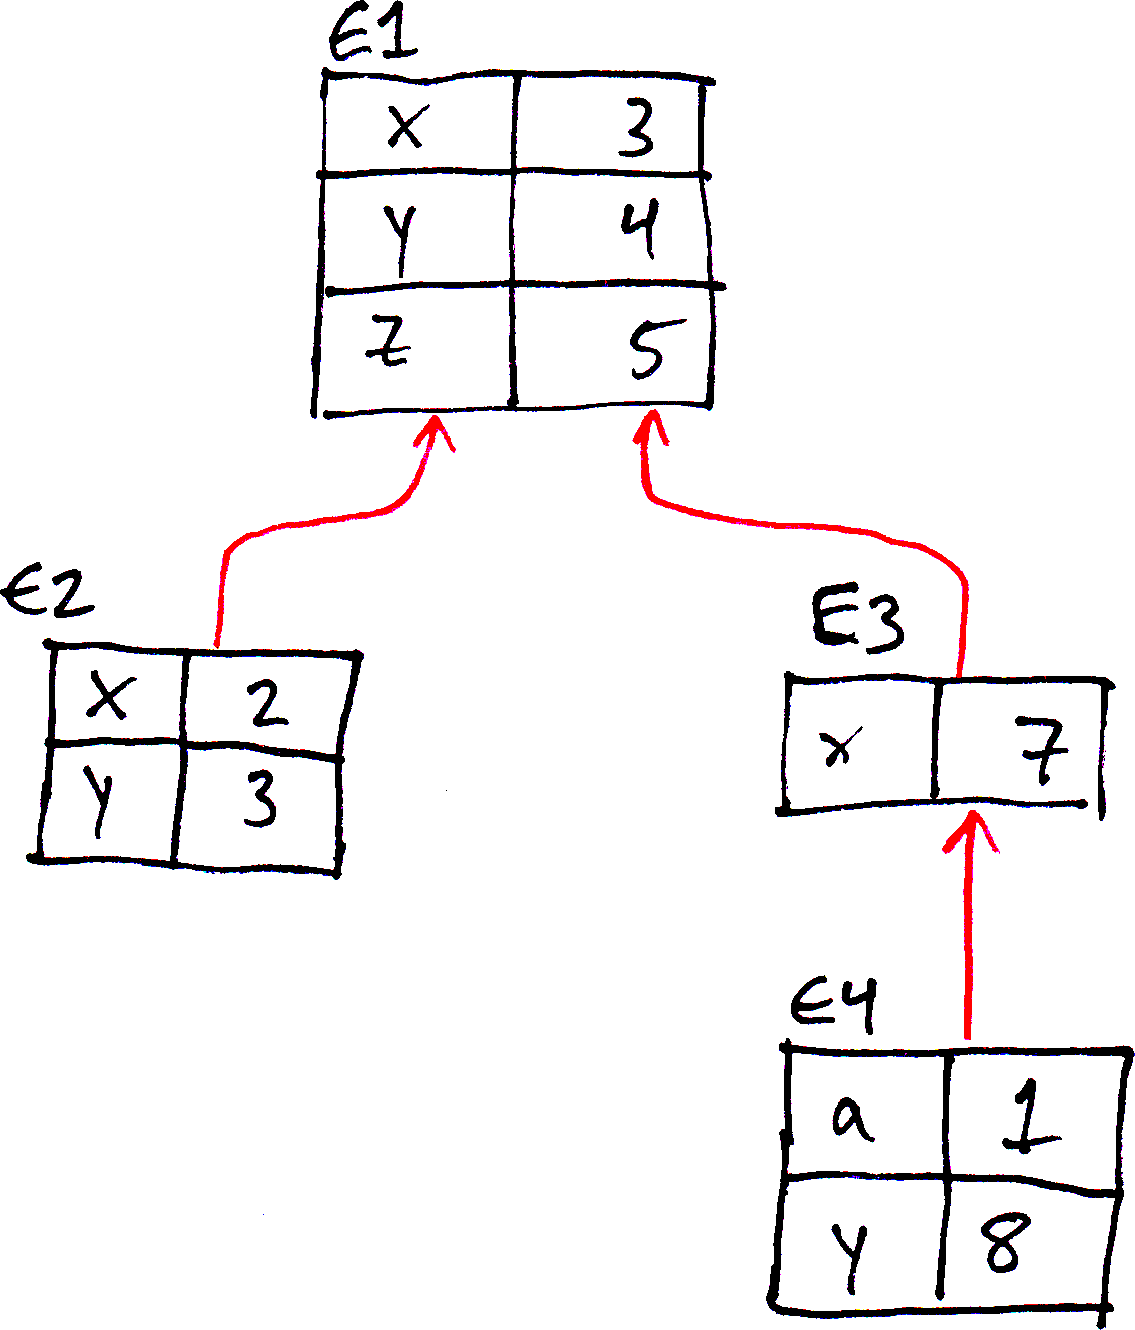 E1
x 3
y 4
z 5
E2
x 2
y 3
E3
x 7
E4
a 1
y 8